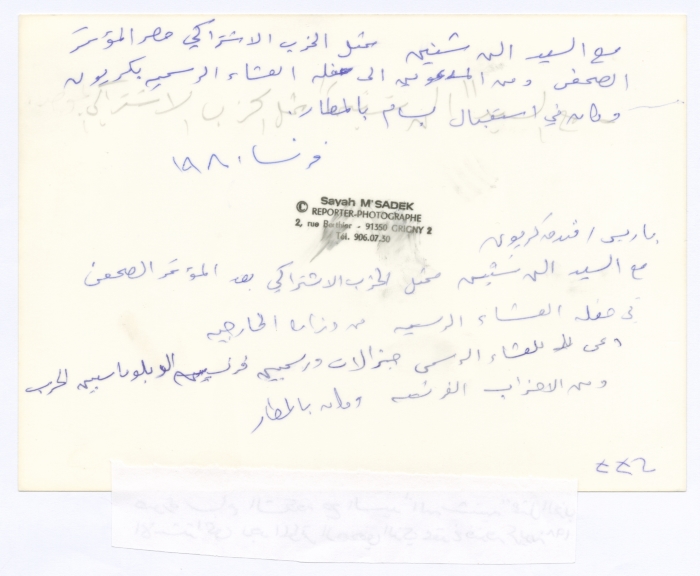 مع السيد الن شنين ممثل الحزب الاشتراكي حضر المؤتمر
الصحفي ومن المدعوين الى حفله العشاء الرسمي بكريون
وكان في استقبال بسام بالمطار
فرنسا ١٩٨١
© Sayah M'SADEK
REPORTER-PHOTOGRAPHE
2, rue Berthier - 91350 GRIGNY 2
Tél. 906.07.30
باريس / فندق كريون
مع السيد الن شنين ممثل الحزب الاشتراكي بعد المؤتمر الصحفي
في حفله العشاء الرسميه من وزارة الخارجيه
دعى للعشاء الرسمي جنرالات ورسميين فرنسيين
ومن الاحزاب الفرنسيه وكان بالمطار